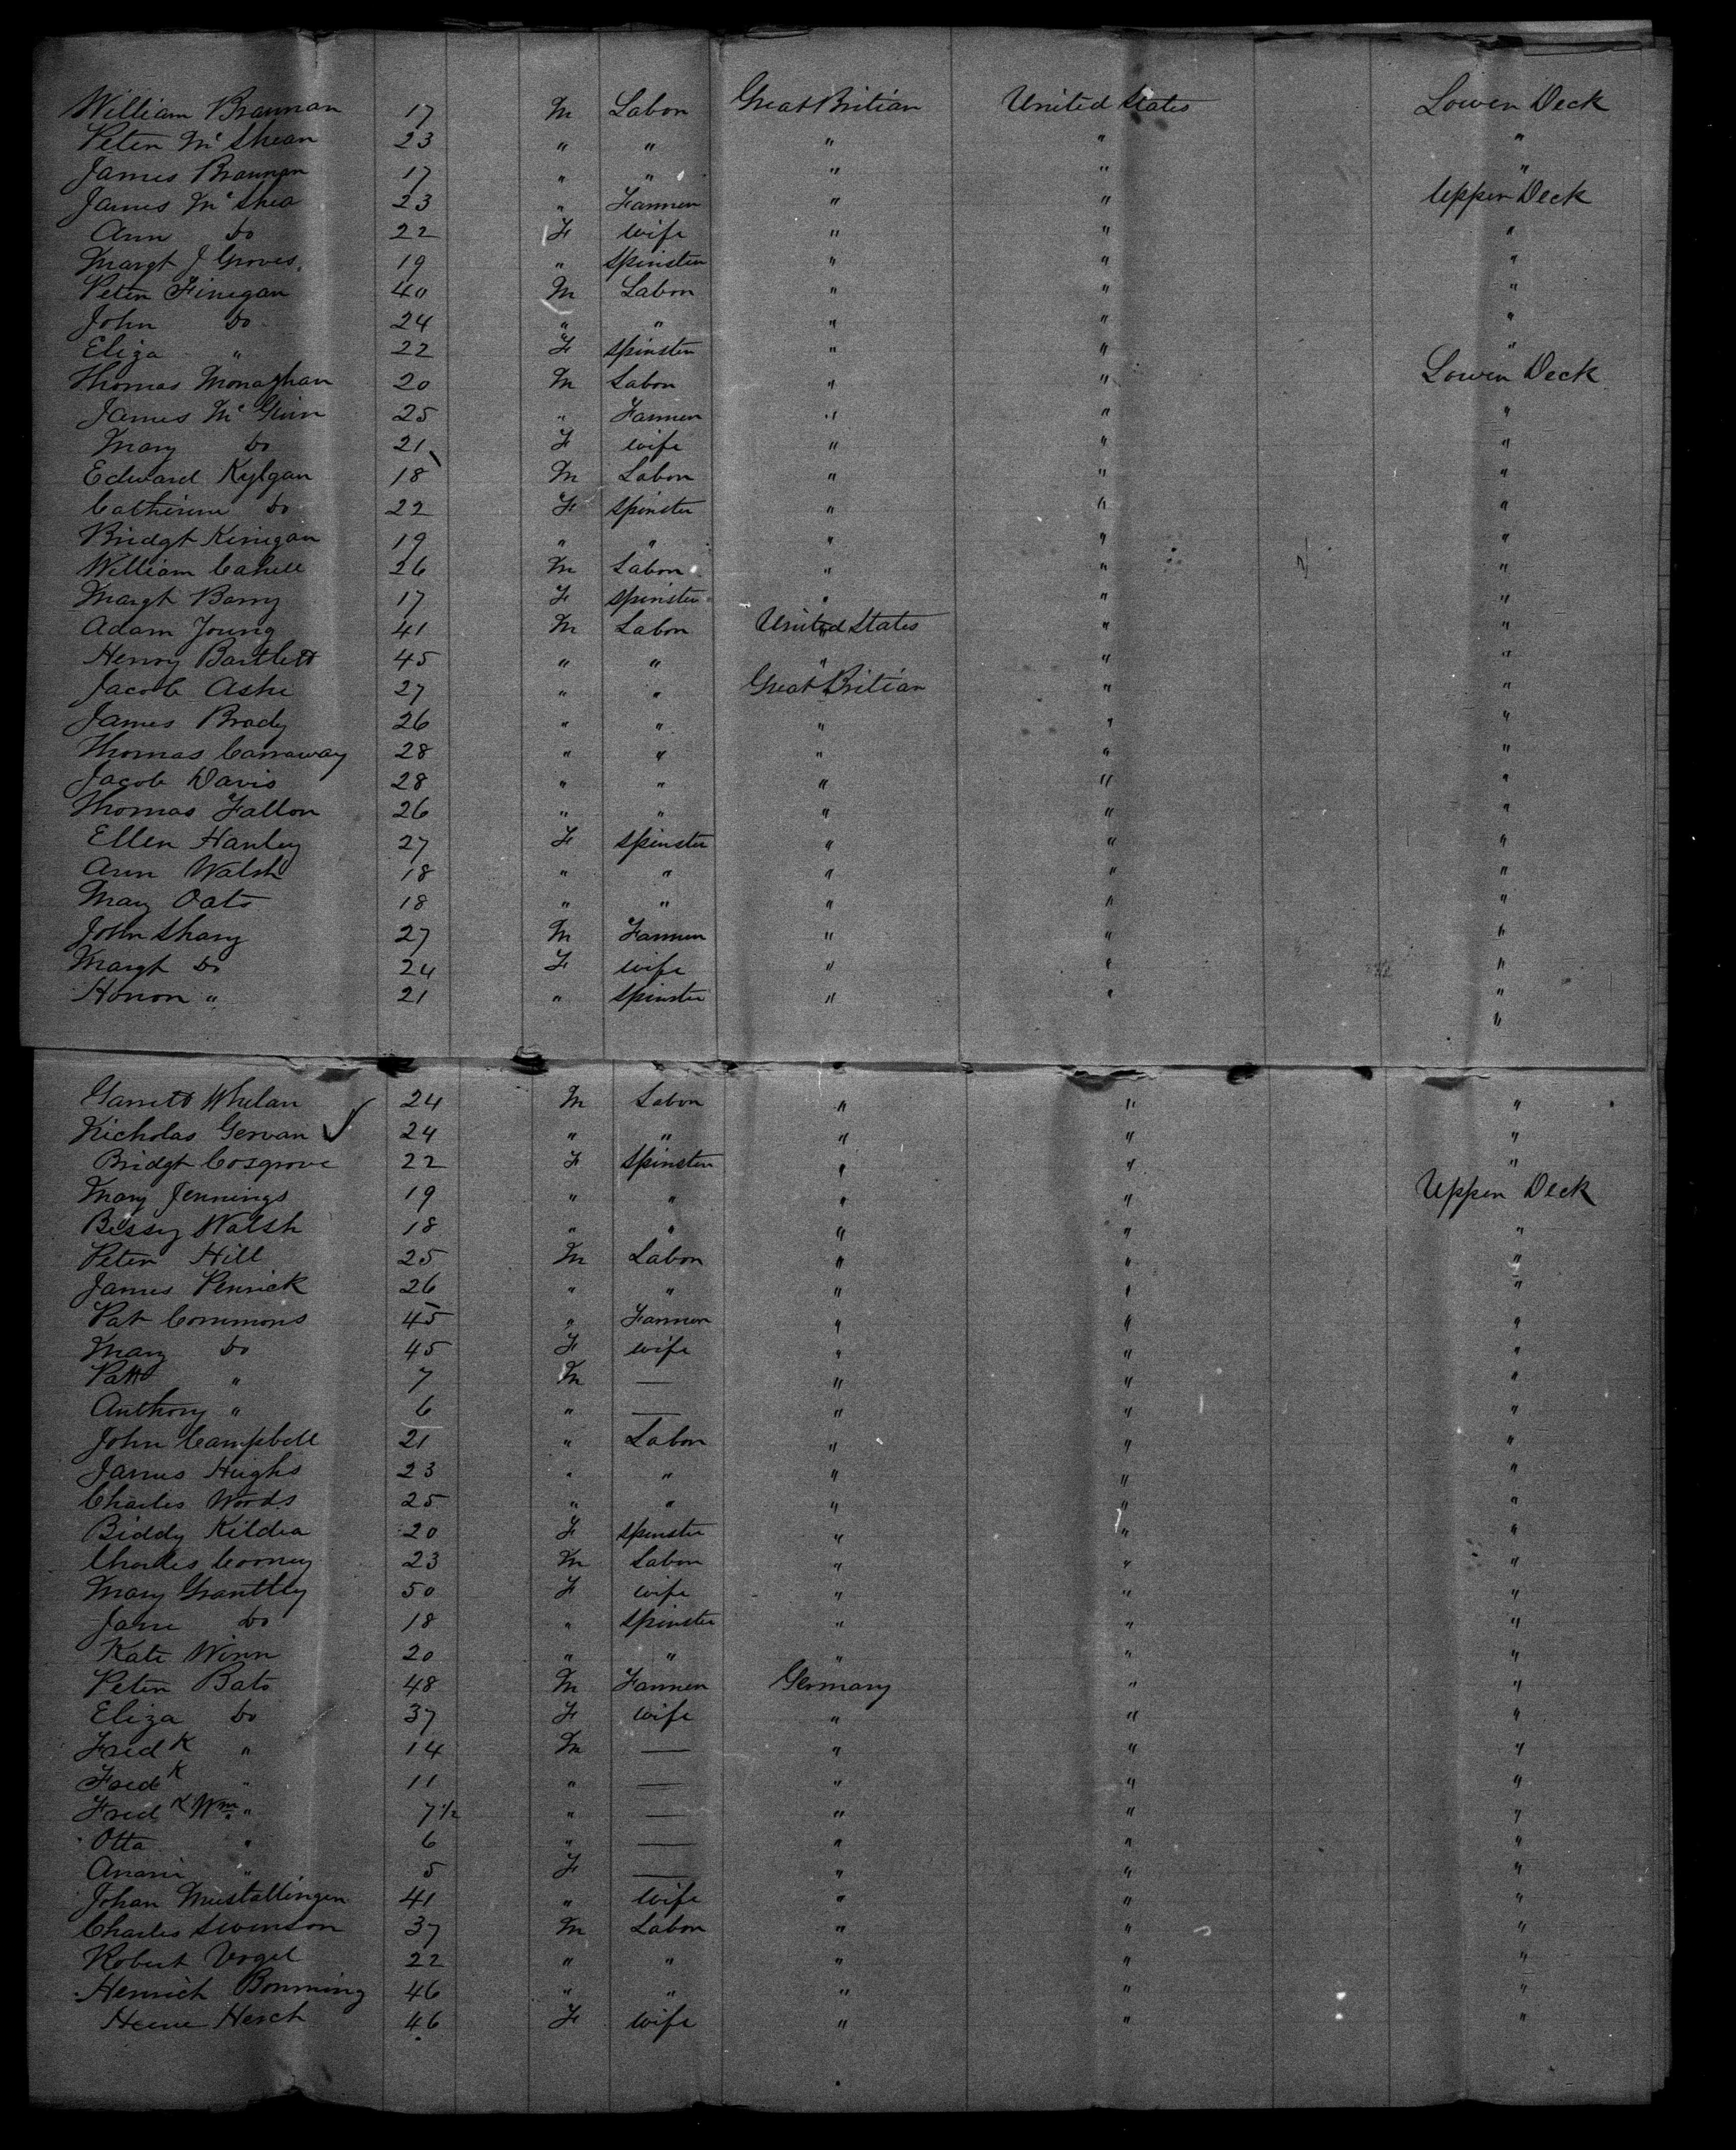 William Brannan 17 M Labor Great Britian United States Lower Deck
Peter McShean 23 " " " " "
James Brannan 17 " " " " "
James McShea 23 " Farmer " " Upper Deck
Ann Do 22 F wife " " "
Margt J Groves 19 " spinster " " "
Peter Finegan 40 M Labor " " "
John Do 24 " " " " "
Eliza " 22 F spinster " " "
Thomas Monaghan 20 M Labor " " Lower Deck
James McGinn 25 " Farmer " " "
Mary Do 21 F wife " " "
Edward Kylgan 18 M Labor " " "
Catherine Do 22 F spinster " " "
Bridgt Kinigan 19 " " " " "
William Cahill 26 M Labor " " "
Margt Barry 17 F spinster " " "
Adam Young 41 M Labor United States " "
Henry Bartlett 45 " " " " "
Jacob Ashe 27 " " Great Britian " "
James Brady 26 " " " " "
Thomas Carraway 28 " " " " "
Jacob Davis 28 " " " " "
Thomas Fallon 26 " " " " "
Ellen Hanley 27 F spinster " " "
Ann Walsh 18 " " " " "
Mary Oats 18 " " " " "
John Shary 27 M Farmer " " "
Margt Do 24 F wife " " "
Honor " 21 " spinster " " "
"
Garrett Whelan 24 M Labor " " "
Nicholas Gervan ✓ 24 " " " " "
Bridgt Cosgrove 22 F spinster " " "
Mary Jennings 19 " " " " Upper Deck
Bessy Walsh 18 " " " " "
Peter Hill 25 M Labor " " "
James Penrick 26 " " " " "
Pat Commons 45 " Farmer " " "
Mary Do 45 F wife " " "
Patt " 7 M — " " "
Anthony " 6 " — " " "
John Campbell 21 " Labor " " "
James Hughs 23 " " " " "
Charles Woods 25 " " " " "
Biddy Kildea 20 F spinster " " "
Charles Cooney 23 M Labor " " "
Mary Granttly 50 F wife " " "
Jane Do 18 " spinster " " "
Kate Winn 20 " " " " "
Peter Bats 48 M Farmer Germany " "
Eliza Do 37 F wife " " "
Fredk " 14 M — " " "
Fredk " 11 " — " " "
Fredk Wm " 7½ " — " " "
Otta " 6 " — " " "
Anani " 5 F — " " "
Johan Mustallingen 41 " wife " " "
Charles Swenson 37 M Labor " " "
Robert Vogel 22 " " " " "
Henrich Bonming 46 " " " " "
Hesch 46 F wife " " "